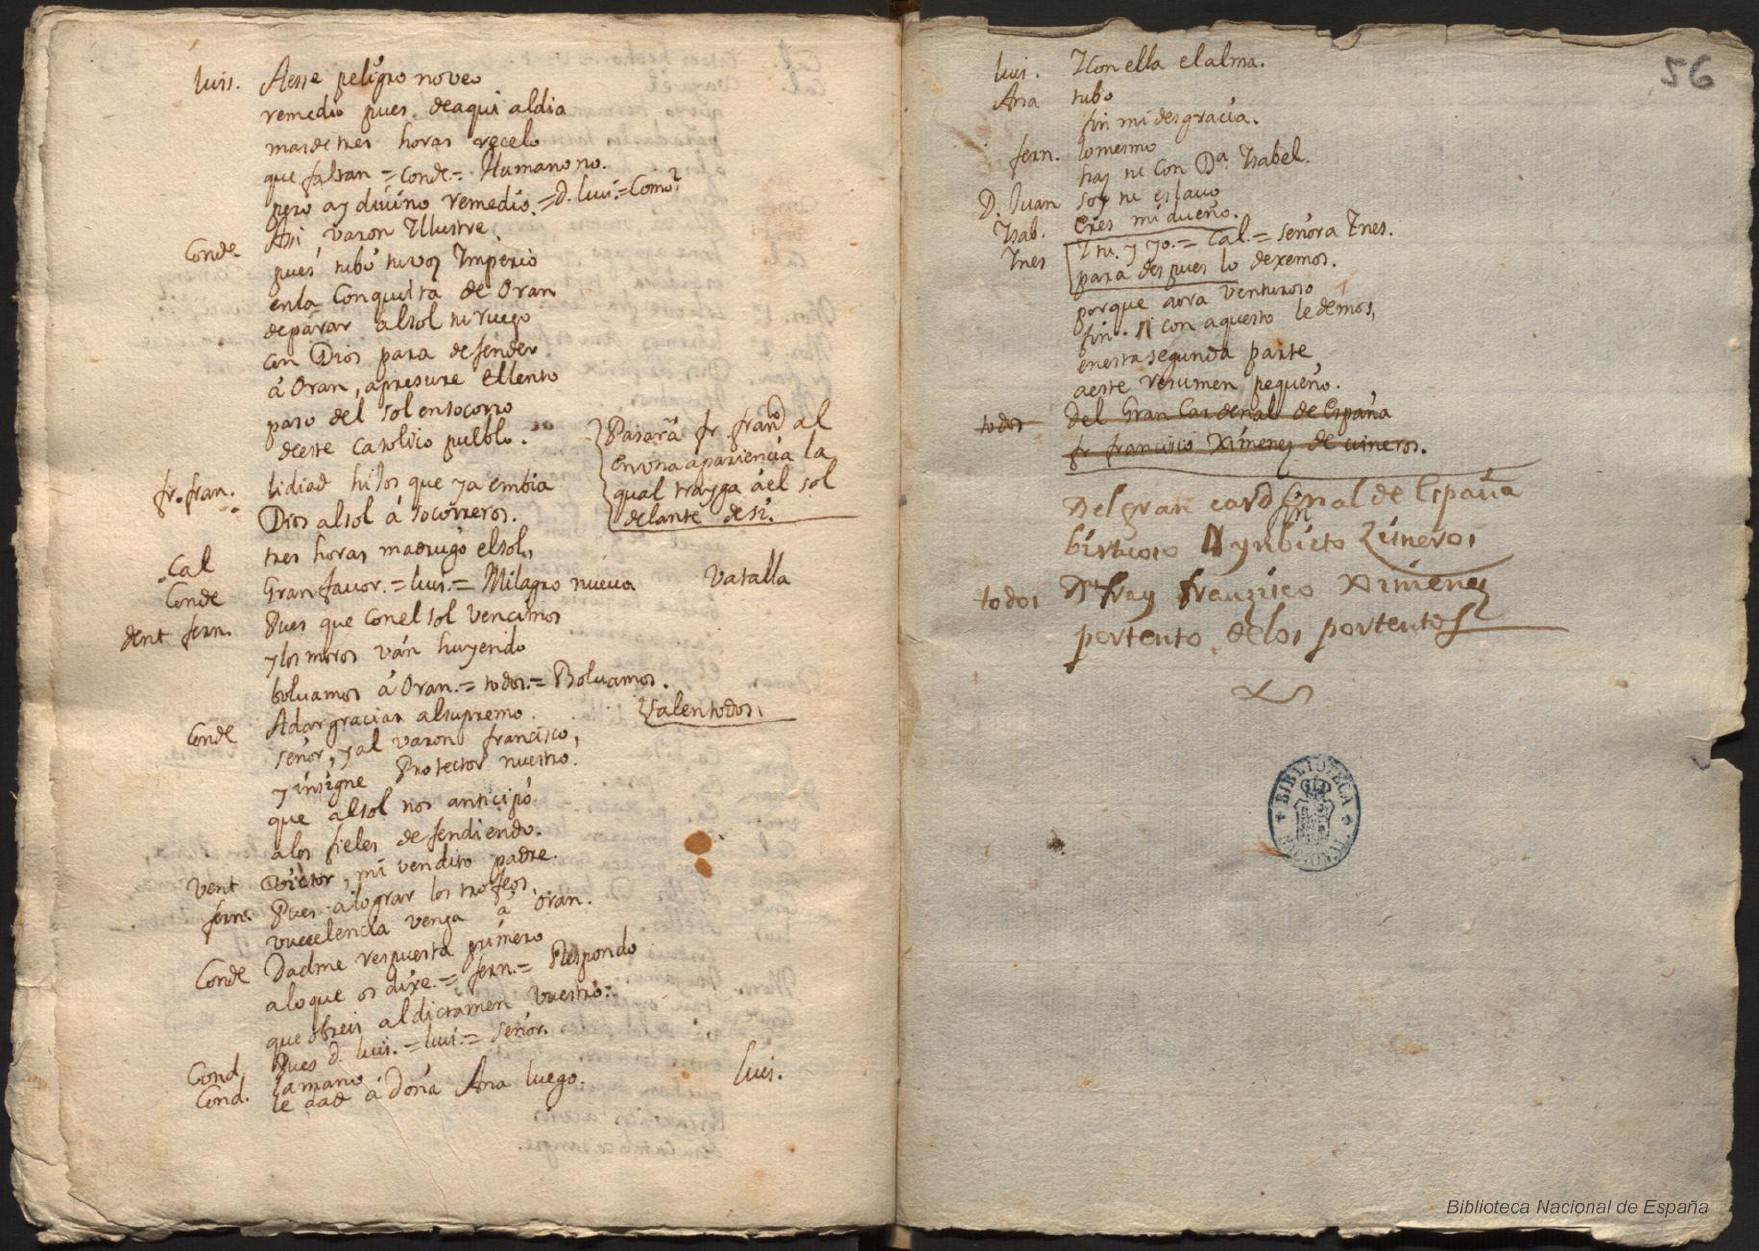 luis. Aesse peligro noveo
remedio pues deaqui aldia
masde tres horas recelo
que faltan = Conde = Humano no.
pero ay divino remedio. = D. luis. = Como?
Conde Assi, varon Illustre,
pues tubo tuvoz Imperio
enla Conquista de Oran
deparar alsol tu ruego
con Dios para defender
á Oran, apresure ellento
paso del sol ensocorro
deeste catolico pueblo.
Pasará fr. franco al
en una apariencia la
qual trayga áel sol
delante de sí.
fr. fran. lidiad hijos que ya embia
Dios alsol á socorreros.
Cal tres horas madrugó elsol,
Conde Gran favor. = luis. = Milagro nuevo Vatalla
dent fern. Pues que conel sol vencimos
y los moros ván huyendo
bolvamos á Oran. = todos. = Bolvamos.
Salen todos.
Conde Adar gracias alsupremo
señor, y al varon francisco,
y insigne Protector nuestro.
que alsol nos anticipó
alos fieles defendiendo.
Vent Victor, mi vendito padre.
fern. Pues alograr los trofeos,
vuecelencia venga á Oran.
Conde Dadme respuesta primero
aloque os dixe. = fern. = Respondo
que obreis aldictamen vuestro.
Cond. Pues d. luis. = luis. = señor.
Cond. la mano
le dad á Doña Ana luego.
luis.
56
luis. Y con ella el alma.
Ana tubo
fin mi desgracia.
fern. lo mesmo
haz tu con Da. Isabel.
D. Juan soy tu esclavo
Isab. Eres mi dueño.
Ines Y tu. y yo. = Cal. = señora Ines.
para despues lo dexemos.
porque aora venturoso
fin. con aquesto le demos,
enesta segunda parte
aeste resumen pequeño.
todos Del Gran Cardenal de España
fr francisco Ximenez de cisneros.
Del gran cardenal de España
birtuoso Zisneros
todos Dn fray franzisco Ximenez
portento delos portentos
BIBLIOTECA
Biblioteca Nacional de España